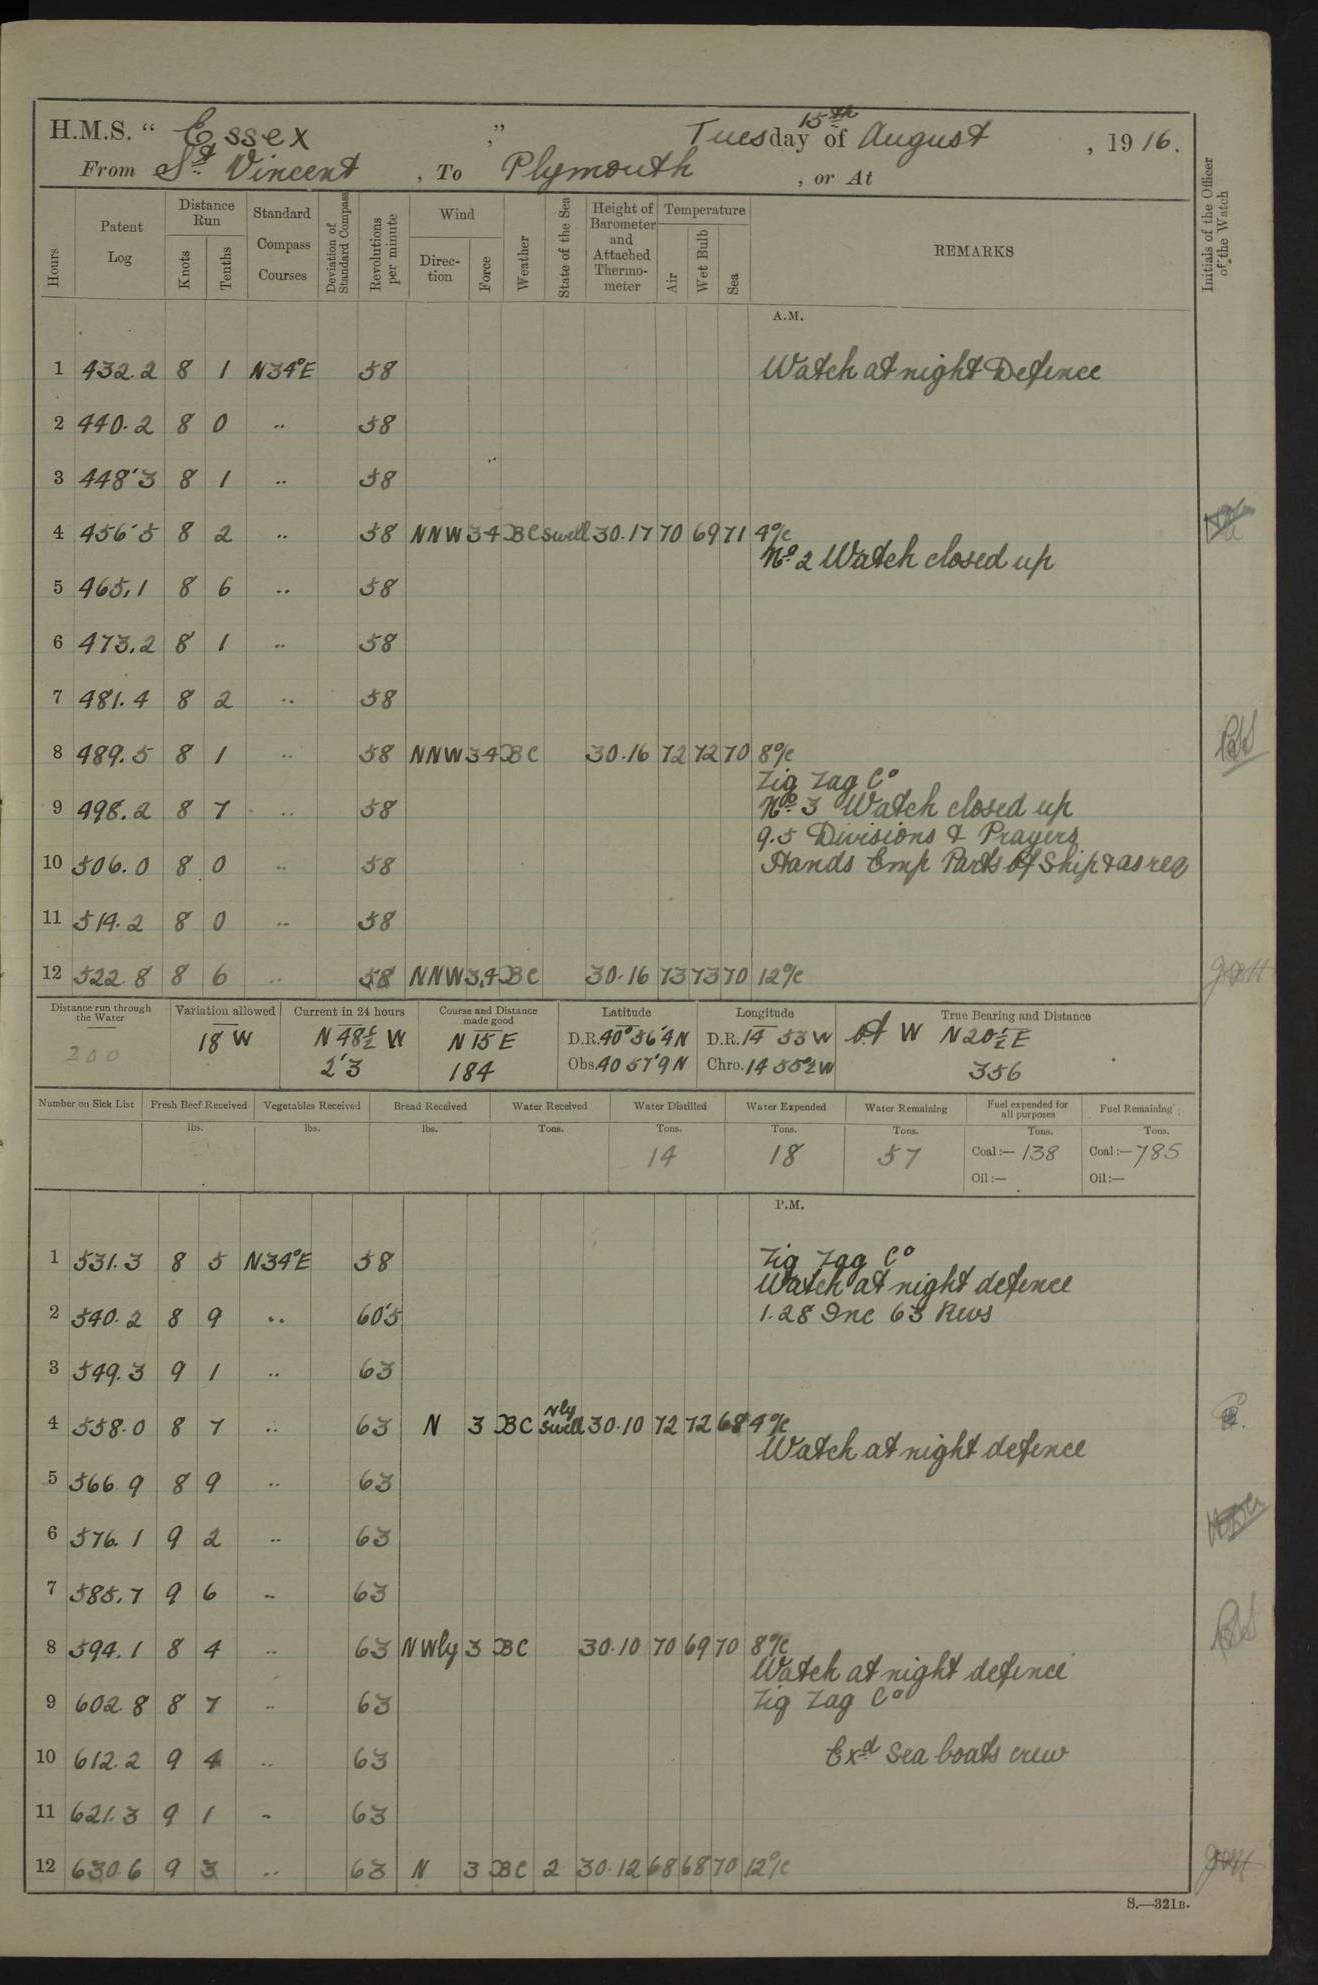 H.M.S. " Essex " Tuesday 15th of August , 1916.
From St. Vincent , To Plymouth , or At
Hours
Patent Log
Distance Run
Knots
Tenths
Standard Compass Courses
Deviation of Standard Compass
Revolutions per minute
Wind
Direction
Force
Weather
State of the Sea
Height of Barometer and Attached Thermometer
Temperature
Air
Wet Bulb
Sea
REMARKS
Initials of the Officer of the Watch
A.M.
1 432.2 8 1 N34°E 58 Watch at night Defence
2 440.2 8 0 .. 58
3 448.3 8 1 .. 58
4 456.5 8 2 .. 58 NNW 34 BC Swell 30.17 70 69 71 4 o/c
No. 2 Watch closed up
5 465.1 8 6 .. 58
6 473.2 8 1 .. 58
7 481.4 8 2 .. 58
8 489.5 8 1 .. 58 NNW 34 BC 30.16 72 72 70 8 o/c
Zig Zag Co
9 498.2 8 7 .. 58 No. 3 Watch closed up
9.5 Divisions & Prayers
10 506.0 8 0 .. 58 Hands Emp Parts of Ship & as req
11 514.2 8 0 .. 58
12 522.8 8 6 .. 58 NNW 3.4 BC 30.16 73 73 70 12 o/c
Distance run through the Water
200
Variation allowed
18 W
Current in 24 hours
N 48½ W
2'3
Course and Distance made good
N 15 E
184
Latitude
D.R. 40° 56'4 N
Obs. 40 57'9 N
Longitude
D.R. 14 53 W
Chro. 14 55½ W
True Bearing and Distance
W N20½E
356
Number on Sick List
Fresh Beef Received
lbs.
Vegetables Received
lbs.
Bread Received
lbs.
Water Received
Tons.
Water Distilled
Tons.
14
Water Expended
Tons.
18
Water Remaining
Tons.
57
Fuel expended for all purposes
Tons.
Coal:— 138
Oil:—
Fuel Remaining
Tons.
Coal:— 785
Oil:—
P.M.
1 531.3 8 5 N34°E 58 Zig Zag Co
Watch at night defence
2 540.2 8 9 .. 60'5 1.28 Inc 63 Revs
3 549.3 9 1 .. 63
4 558.0 8 7 .. 63 N 3 BC Nly Swell 30.10 72 72 68 4 o/c
Watch at night defence
5 566.9 8 9 .. 63
6 576.1 9 2 .. 63
7 585.7 9 6 .. 63
8 594.1 8 4 .. 63 NWly 3 BC 30.10 70 69 70 8 o/c
Watch at night defence
9 602.8 8 7 .. 63 Zig Zag Co
10 612.2 9 4 .. 63 Exd Sea boats crew
11 621.3 9 1 .. 63
12 630.6 9 3 .. 63 N 3 BC 2 30.12 68 68 70 12 o/c
S.—321B.